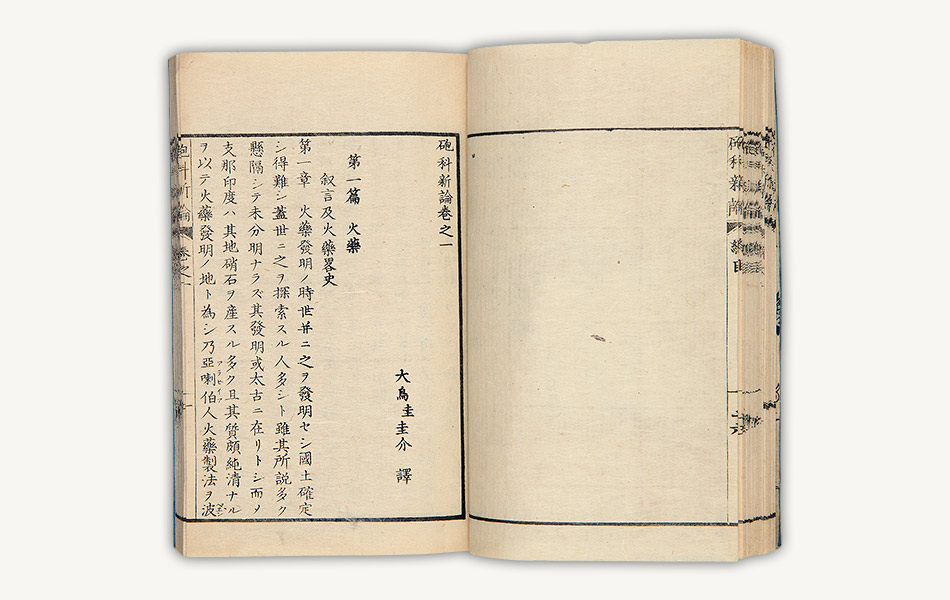 砲科新論巻之一
大鳥圭介 譯
第一篇 火藥
叙言及火藥畧史
第一章 火藥發明ノ時世並ニ之ヲ發明セシ國土確定
シ得難シ蓋世ニ之ヲ探索スル人多シト雖其所説多ク
懸隔シテ未分明ナラズ其發明或太古ニ在リトシ而ノ
支那印度ハ其地硝石ヲ産スル多ク且其質頗純清ナル
ヲ以テ火藥發明ノ地ト為シ乃亞喇伯人火藥製法ヲ波
アラビイア
砲科新論
巻之一
砲科新論